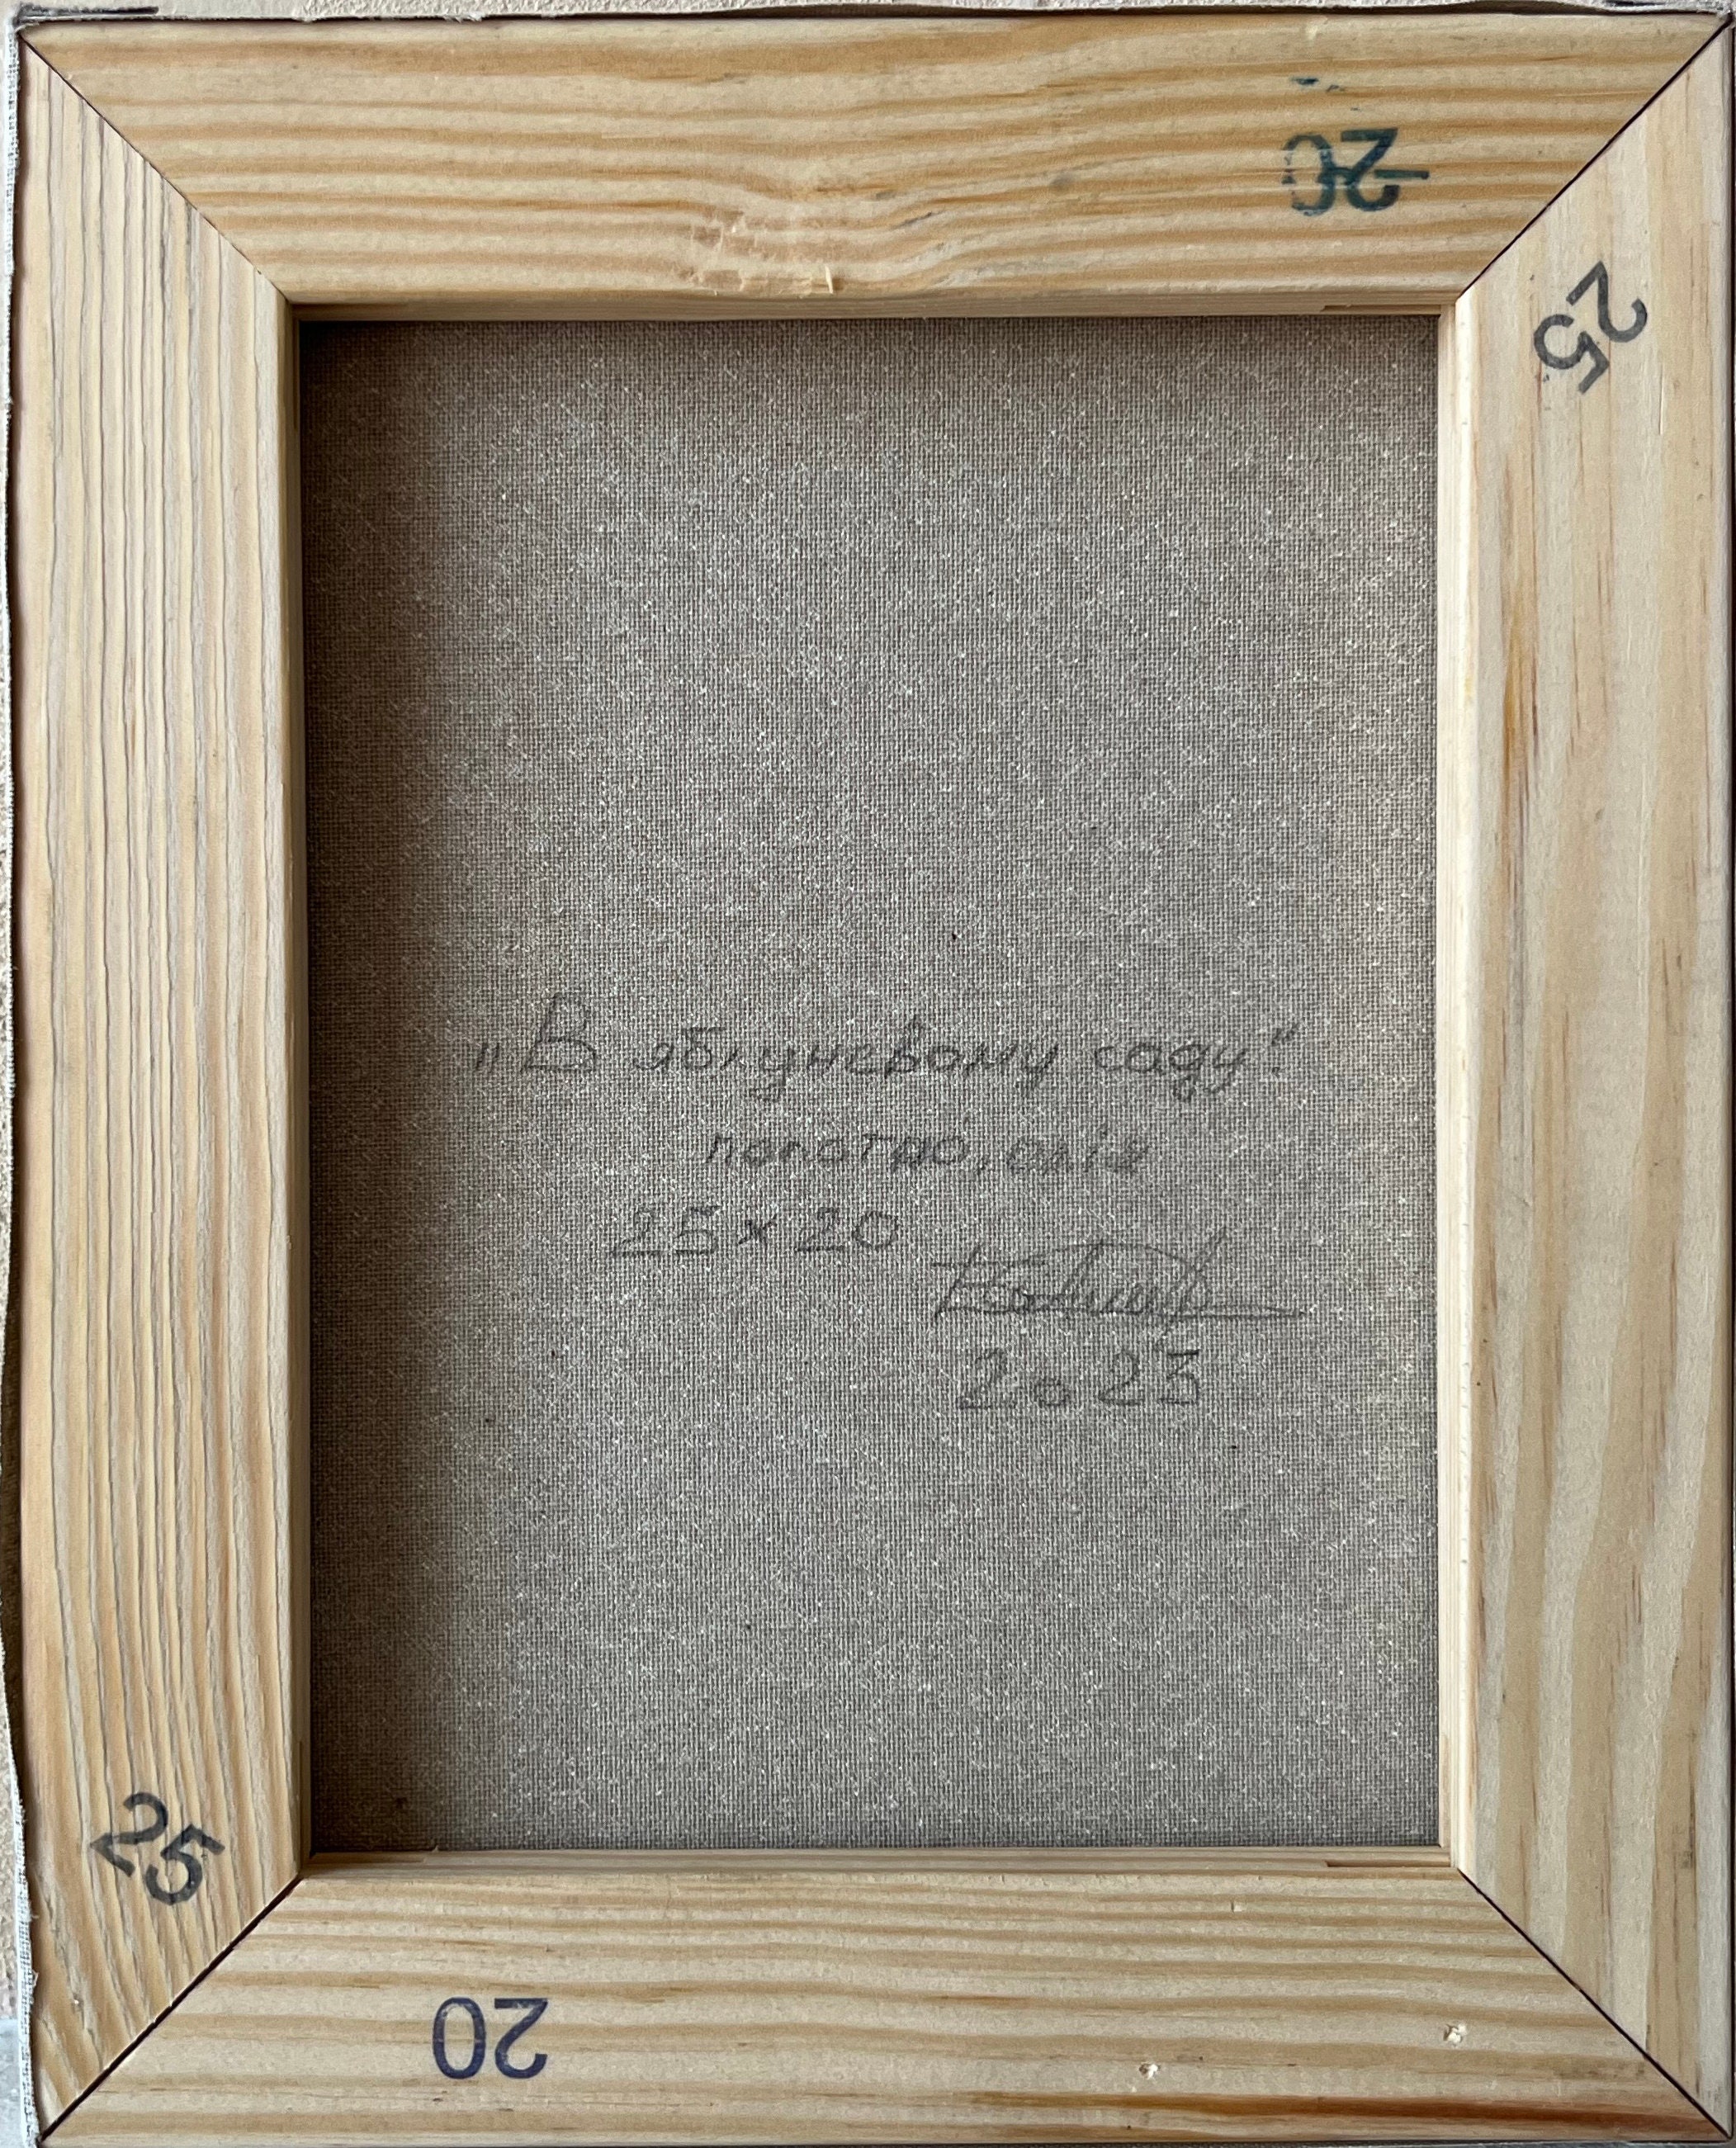 20
25
„В яблуневому саду"
полотно, олія
25х20
2023
25
20